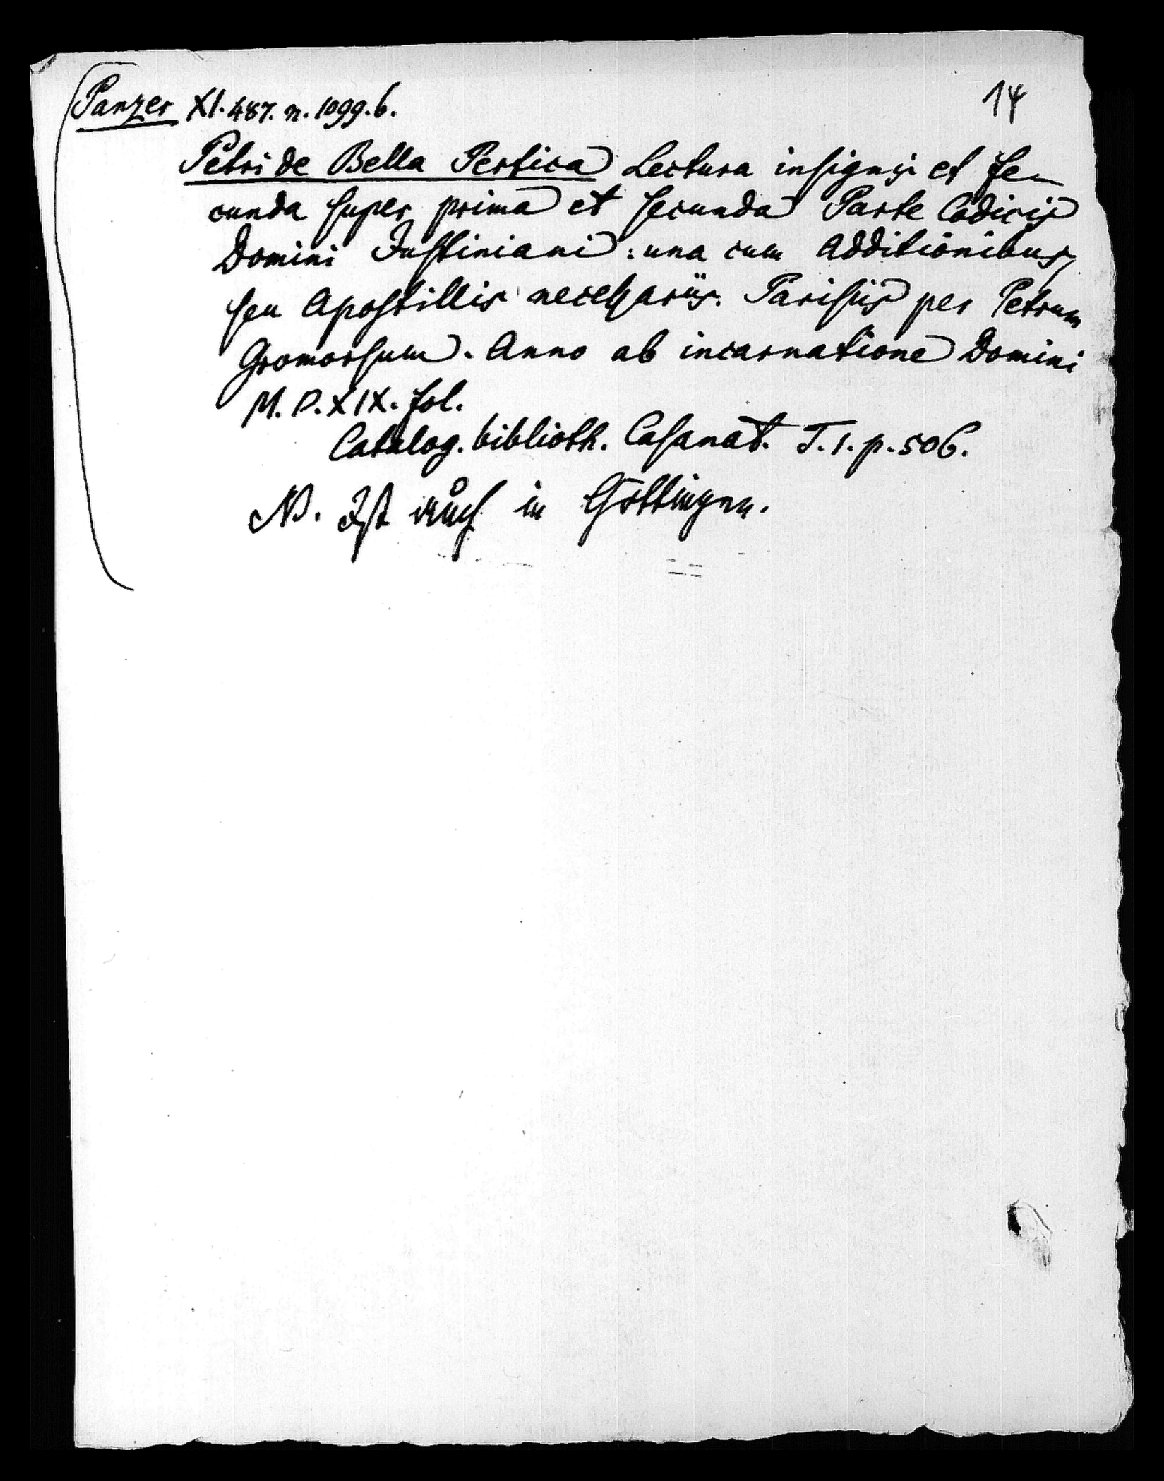 Panzer XI. 487. n. 1099. b.
14
Petri de Bella Pertica Lectura insignis et fe-
cunda super prima et secunda Parte Codicis
Domini Justiniani: una cum Additionibus
seu Apostillis necessariis. Parisiis per Petrum
Gromorsum. Anno ab incarnatione Domini
M. D. XIX. fol.
Catalog. biblioth. Casanat. T. 1. p. 506.
NB. Ist auch in Göttingen.